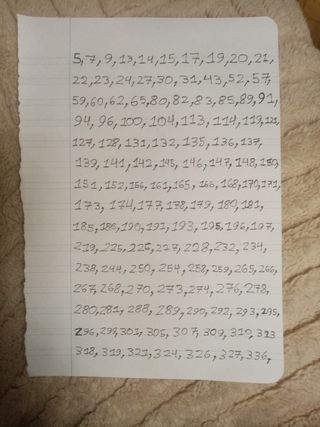 5,7,9,13,14,15,17,19,20,21,
22,23,24,27,30,31,43,52,57,
59,60,62,65,80,82,83,85,89,91,
94,96,100,104,113,114,119,121,
127,128,131,132,135,136,137,
139,141,142,145,146,147,148,150,
151,152,156,161,165,168,170,171,
173,174,177,178,179,180,181,
185,186,190,191,193,195,196,197,
219,225,226,227,228,232,234,
238,244,250,254,258,259,265,266,
267,268,270,273,274,276,278,
280,281,288,289,290,292,293,295,
296,298,301,305,307,309,310,313
318,319,321,324,326,327,336,